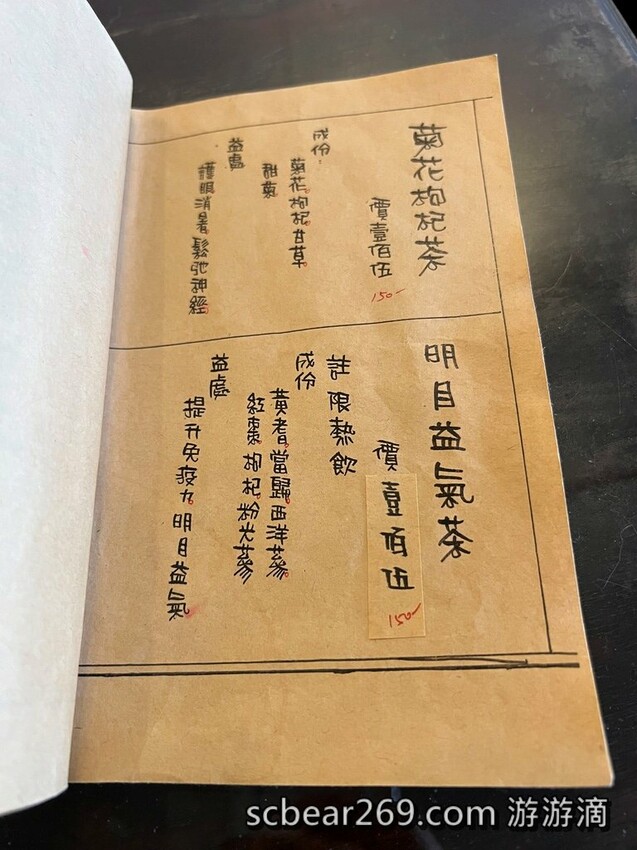 菊花枸杞茶
價壹佰伍
150-
成份:
菊花.枸杞.甘草.
甜菊
益處
護眼消暑.鬆弛神經.
明目益氣茶
價壹佰伍
150-
註限熱飲
成份
黃耆.當歸.西洋蔘.
紅棗.枸杞.粉光蔘
益處
提升免疫力.明目益氣.
scbear269.com 游游滴